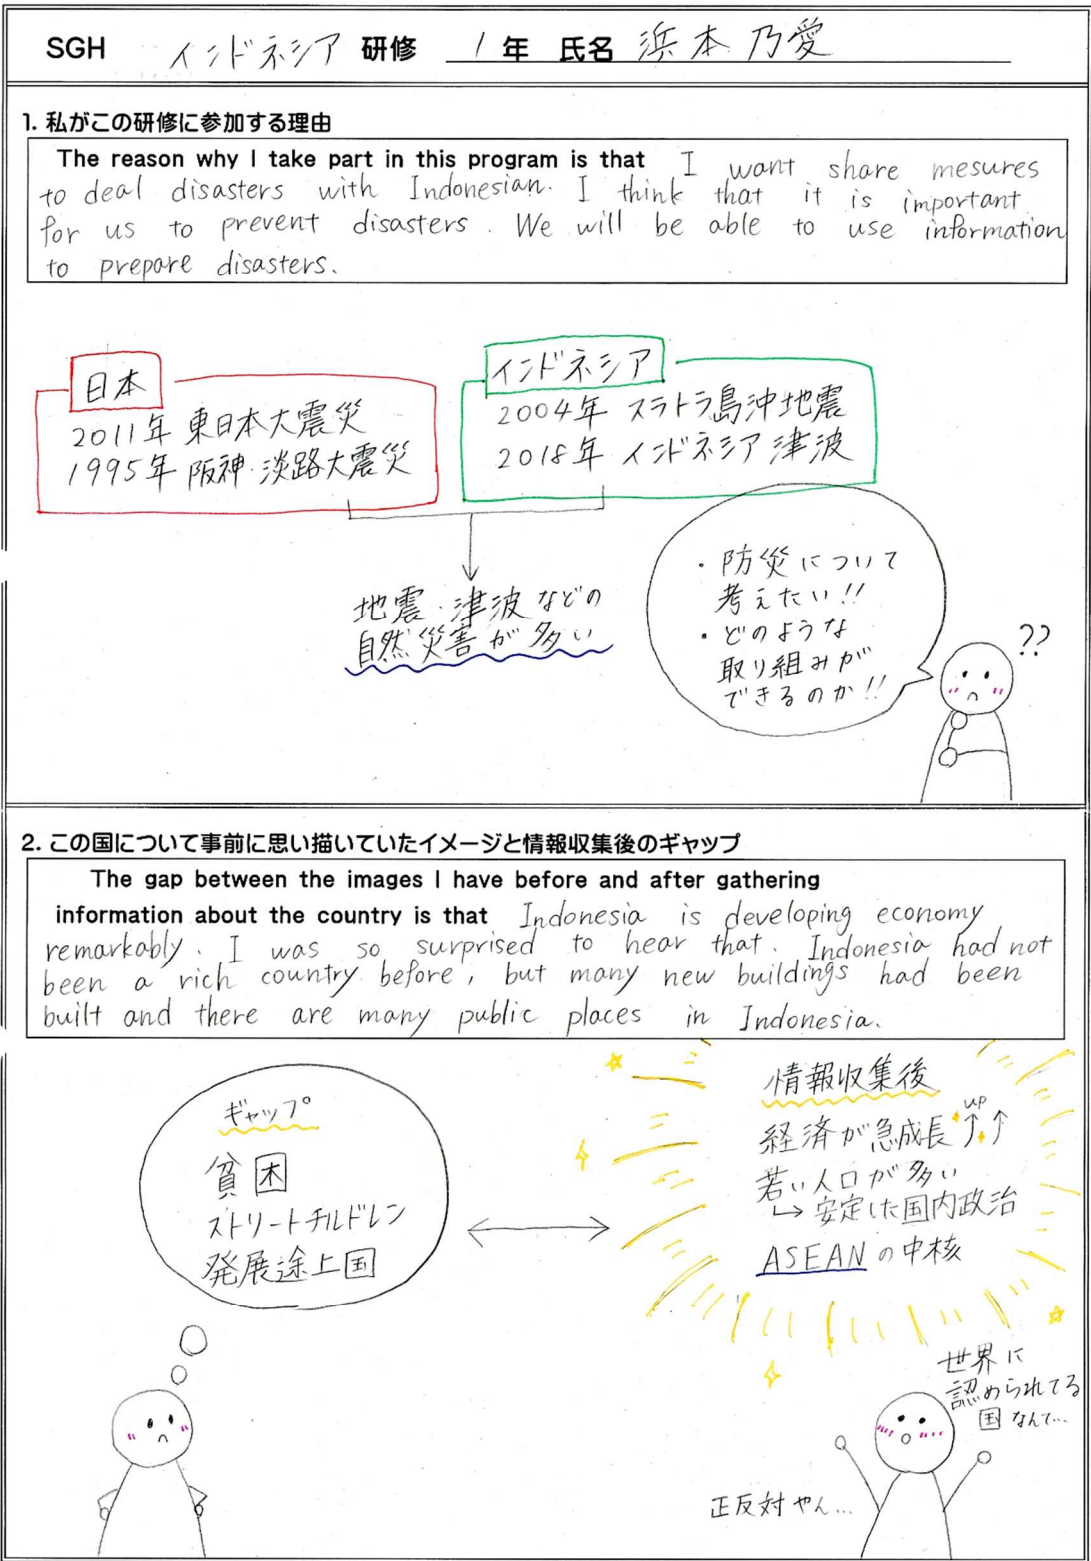 SGH インドネシア 研修 1 年 氏名 浜本 乃愛
1. 私がこの研修に参加する理由
The reason why I take part in this program is that I want share mesures
to deal disasters with Indonesian. I think that it is important
for us to prevent disasters. We will be able to use information
to prepare disasters.
日本
2011年 東日本大震災
1995年 阪神・淡路大震災
インドネシア
2004年 スラトラ島沖地震
2018年 インドネシア津波
地震・津波などの
自然災害が多い
・防災について
考えたい!!
・どのような
取り組みが
できるのか!!
??
2. この国について事前に思い描いていたイメージと情報収集後のギャップ
The gap between the images I have before and after gathering
information about the country is that Indonesia is developing economy
remarkably. I was so surprised to hear that. Indonesia had not
been a rich country before, but many new buildings had been
built and there are many public places in Indonesia.
ギャップ
貧困
ストリートチルドレン
発展途上国
情報収集後
経済が急成長 up
若い人口が多い
↳ 安定した国内政治
ASEANの中核
世界に
認められてる
国なんて…
正反対やん…